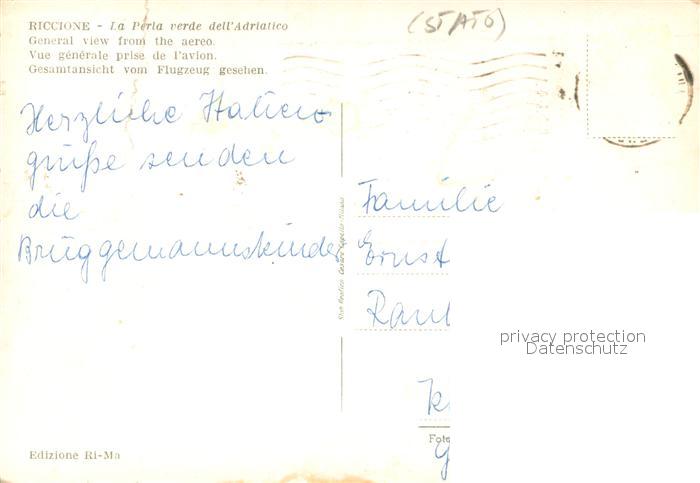 RICCIONE - La Perla verde dell'Adriatico
General view from the aereo.
Vue générale prise de l'avion.
Gesamtansicht vom Flugzeug gesehen.
(STATO)
Herzliche Italien
grüße senden
die
Brüggemannskinder
Familie
Ernst
privacy protection
Datenschutz
Edizione Ri-Ma